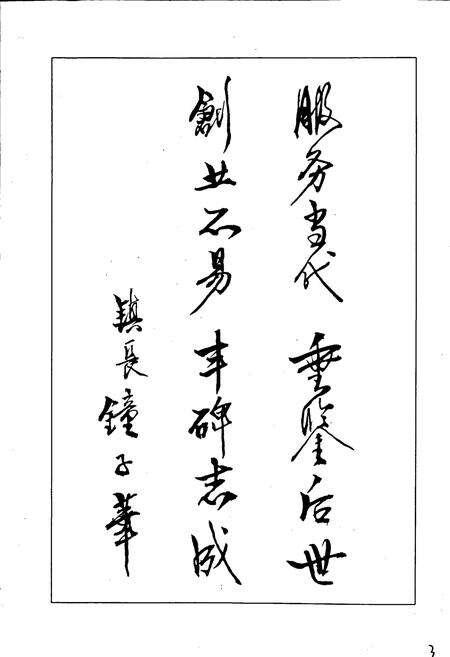 服务当代 垂鉴后世
創业不易 丰碑志成
鎮長鐘子華
3